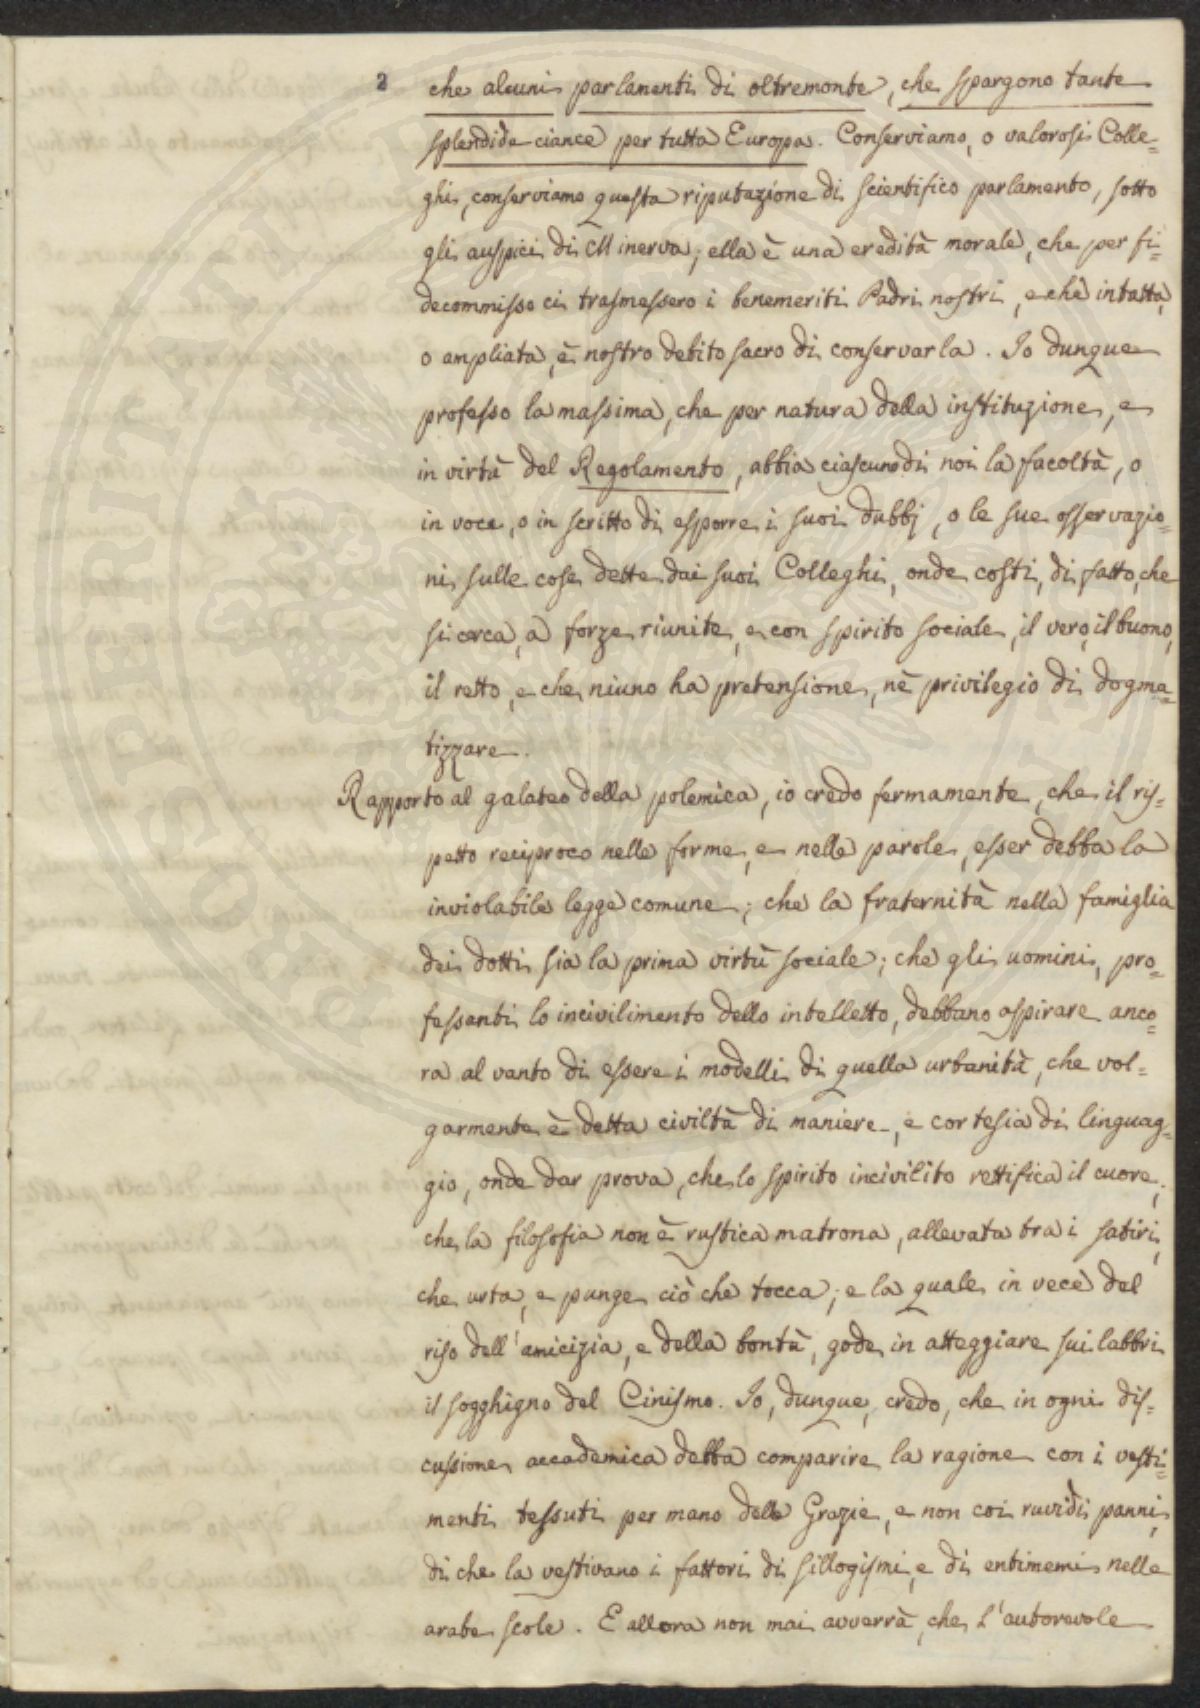 2
che alcuni parlamenti di oltremonte, che spargono tante
splendide ciance per tutta Europa. Conserviamo, o valorosi Colle=
ghi, conserviamo questa riputazione di scientifico parlamento, sotto
gli auspici di Minerva; ella è una eredità morale, che per fi=
decommisso ci trasmessero i benemeriti Padri nostri, e che intatta,
o ampliata, è nostro debito sacro di conservarla. Io dunque
professo la massima, che per natura della instituzione, e
in virtù del Regolamento, abbia ciascuno di noi la facoltà, o
in voce, o in scritto di esporre i suoi dubbj, o le sue osservazio=
ni sulle cose dette dai suoi Colleghi, onde costi, di fatto, che
si cerca, a forze riunite, e con spirito sociale, il vero, il buono,
il retto, e che niuno ha pretensione, nè privilegio di dogma=
tizzare.
Rapporto al galateo della polemica, io credo fermamente, che il ris=
petto reciproco nelle forme, e nelle parole, esser debba la
inviolabile legge comune; che la fraternità nella famiglia
dei dotti sia la prima virtù sociale; che gli uomini, pro=
fessenti lo incivilimento dello intelletto, debbano aspirare anco=
ra al vanto di essere i modelli di quella urbanità, che vol=
garmente è detta civiltà di maniere, e cortesia di linguag=
gio, onde dar prova, che lo spirito incivilito rettifica il cuore;
che la filosofia non è rustica matrona, allevata tra i satiri,
che urta, e punge ciò che tocca; e la quale in vece del
riso dell'amicizia, e della bontà, gode in atteggiare sui labbri
il sogghigno del Cinismo. Io, dunque, credo, che in ogni dis=
cussione accademica debba comparire la ragione con i vesti=
menti tessuti per mano delle Grazie, e non coi ruvidi panni,
di che la vestivano i fattori di sillogismi, e di entimemi nelle
arabe scole. E allora non mai avverrà, che l'autorevole
PROSPERITATI